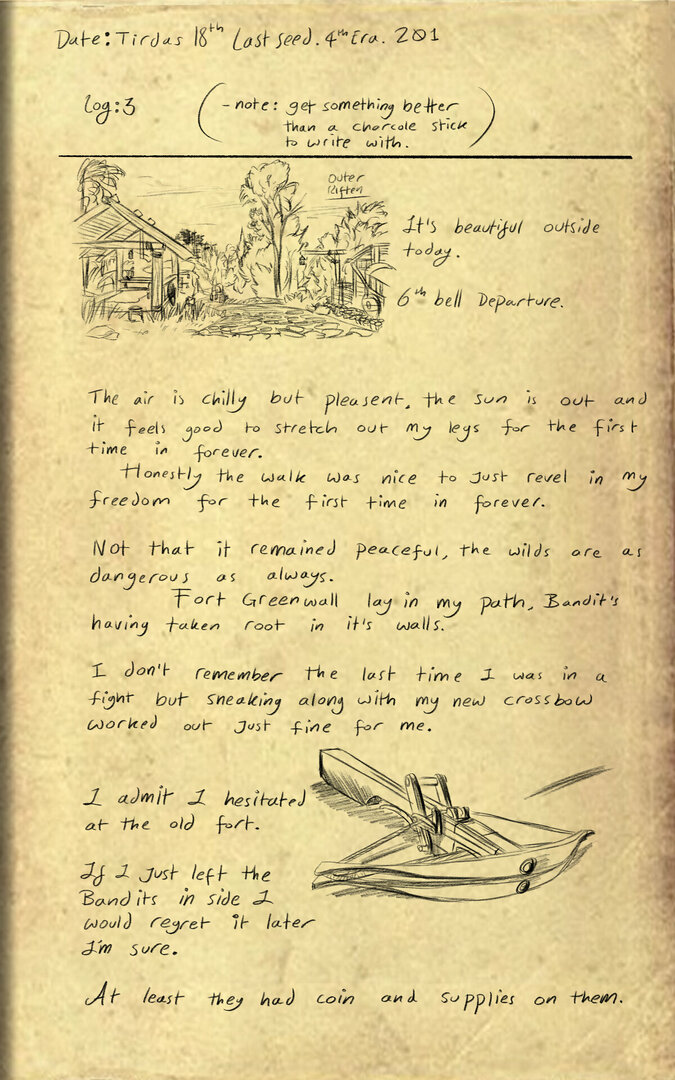 Date: Tirdas 18th Last seed. 4th Era. 201
Log: 3
(- note: get something better
than a charcole stick
to write with.)
Outer
Riften
It's beautiful outside
today.
6th bell Departure.
The air is chilly but pleasent, the sun is out and
it feels good to stretch out my legs for the first
time in forever.
Honestly the walk was nice to just revel in my
freedom for the first time in forever.
Not that it remained peaceful, the wilds are as
dangerous as always.
Fort Greenwall lay in my path, Bandit's
having taken root in it's walls.
I don't remember the last time I was in a
fight but sneaking along with my new crossbow
worked out just fine for me.
I admit I hesitated
at the old fort.
If I just left the
Bandits in side I
would regret it later
I'm sure.
At least they had coin and supplies on them.